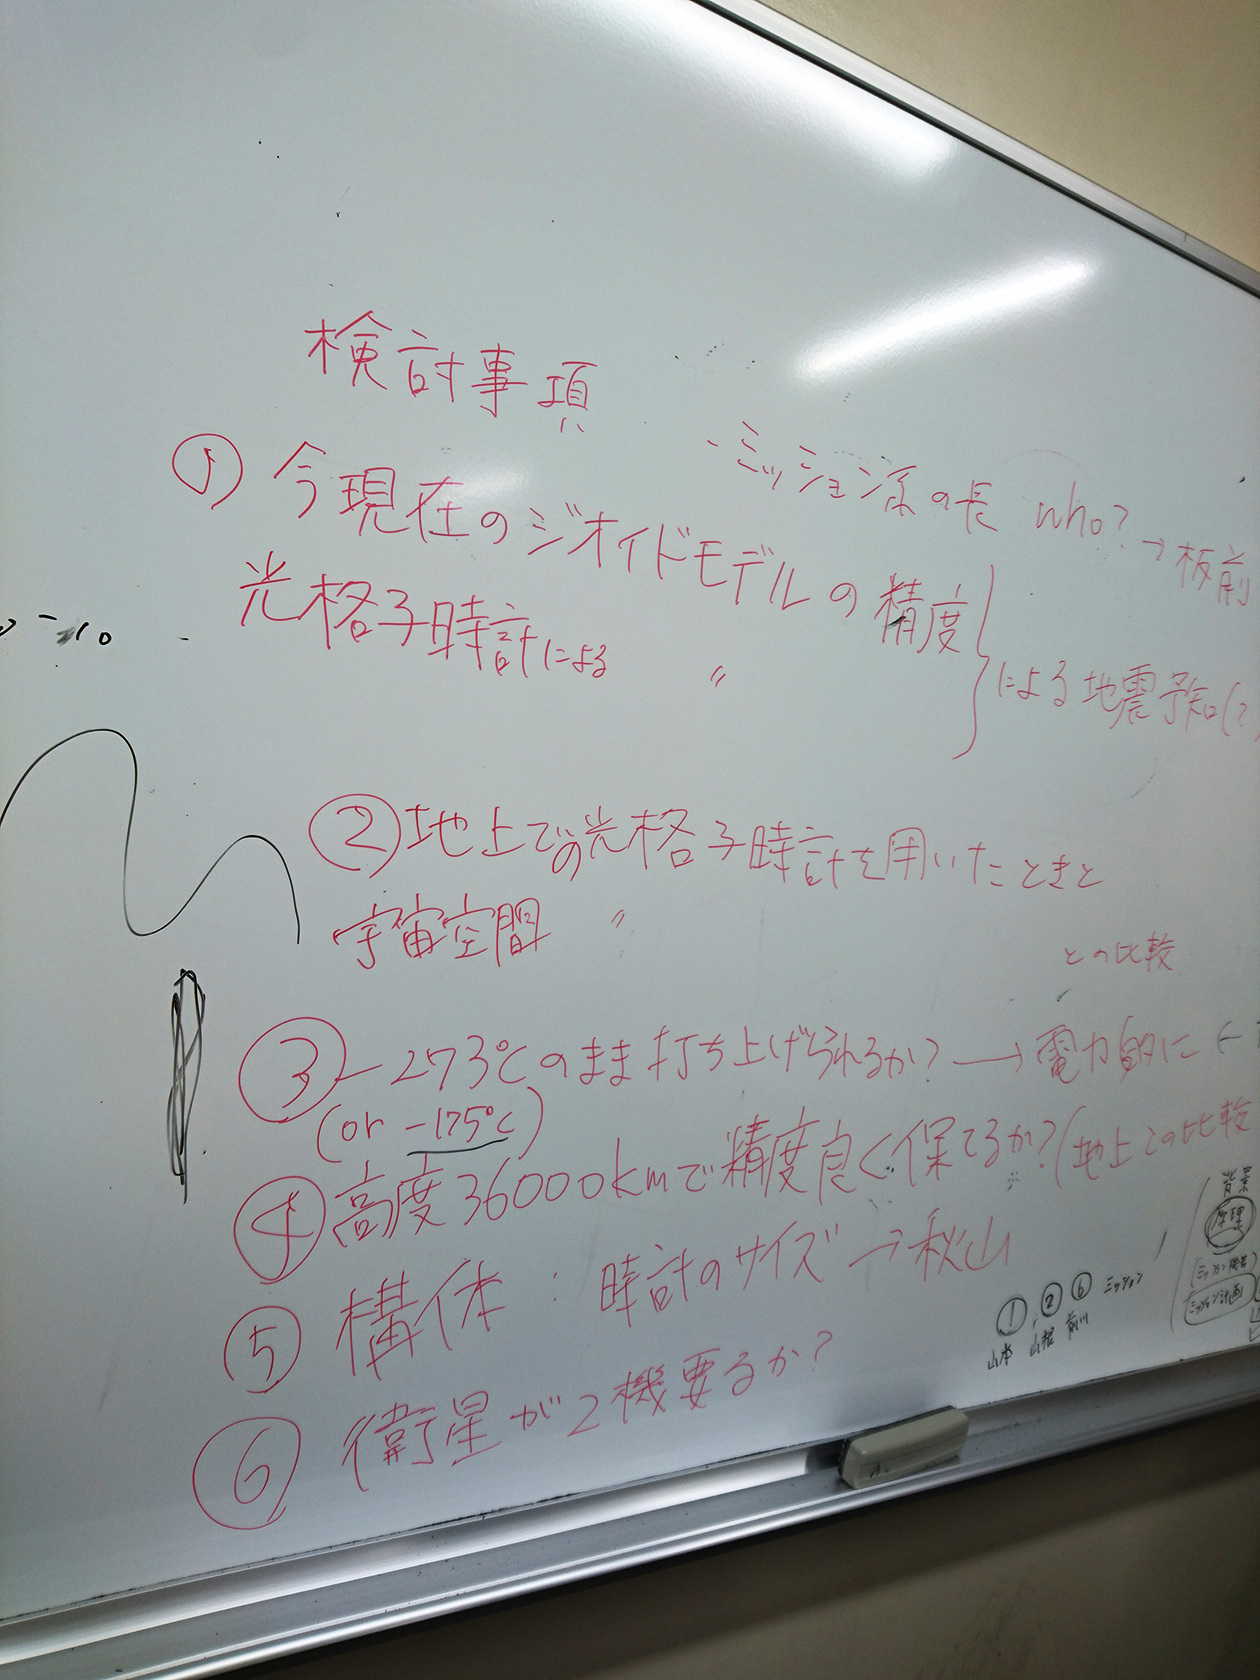 検討事項
・ミッション系の長 who? → 板前
① 今現在のジオイドモデルの精度
光格子時計による 〃
による地震予知(?)
② 地上での光格子時計を用いたときと
宇宙空間 〃
との比較
③ -273℃のまま打ち上げられるか? → 電力的に ←
(or -175℃)
④ 高度36000kmで精度良く保てるか?(地上との比較
⑤ 構体:時計のサイズ → 秋山
⑥ 衛星が2機要るか?
①, ② ⑥ ミッション
山本 山根 前川
背景
原理
ミッション計画